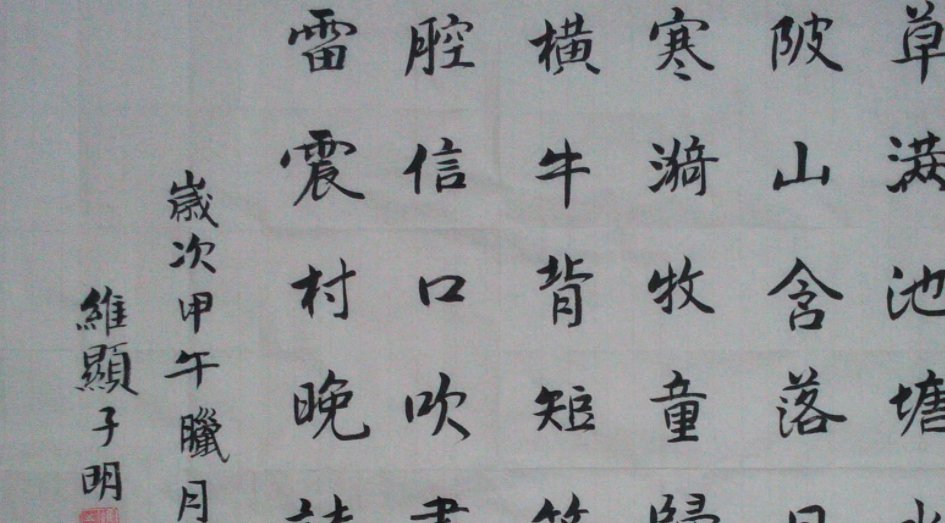 草满池塘
陂山含落
寒漪牧童
横牛背短
腔信口吹
雷震村晚
歲次甲午臘月
維顯子明